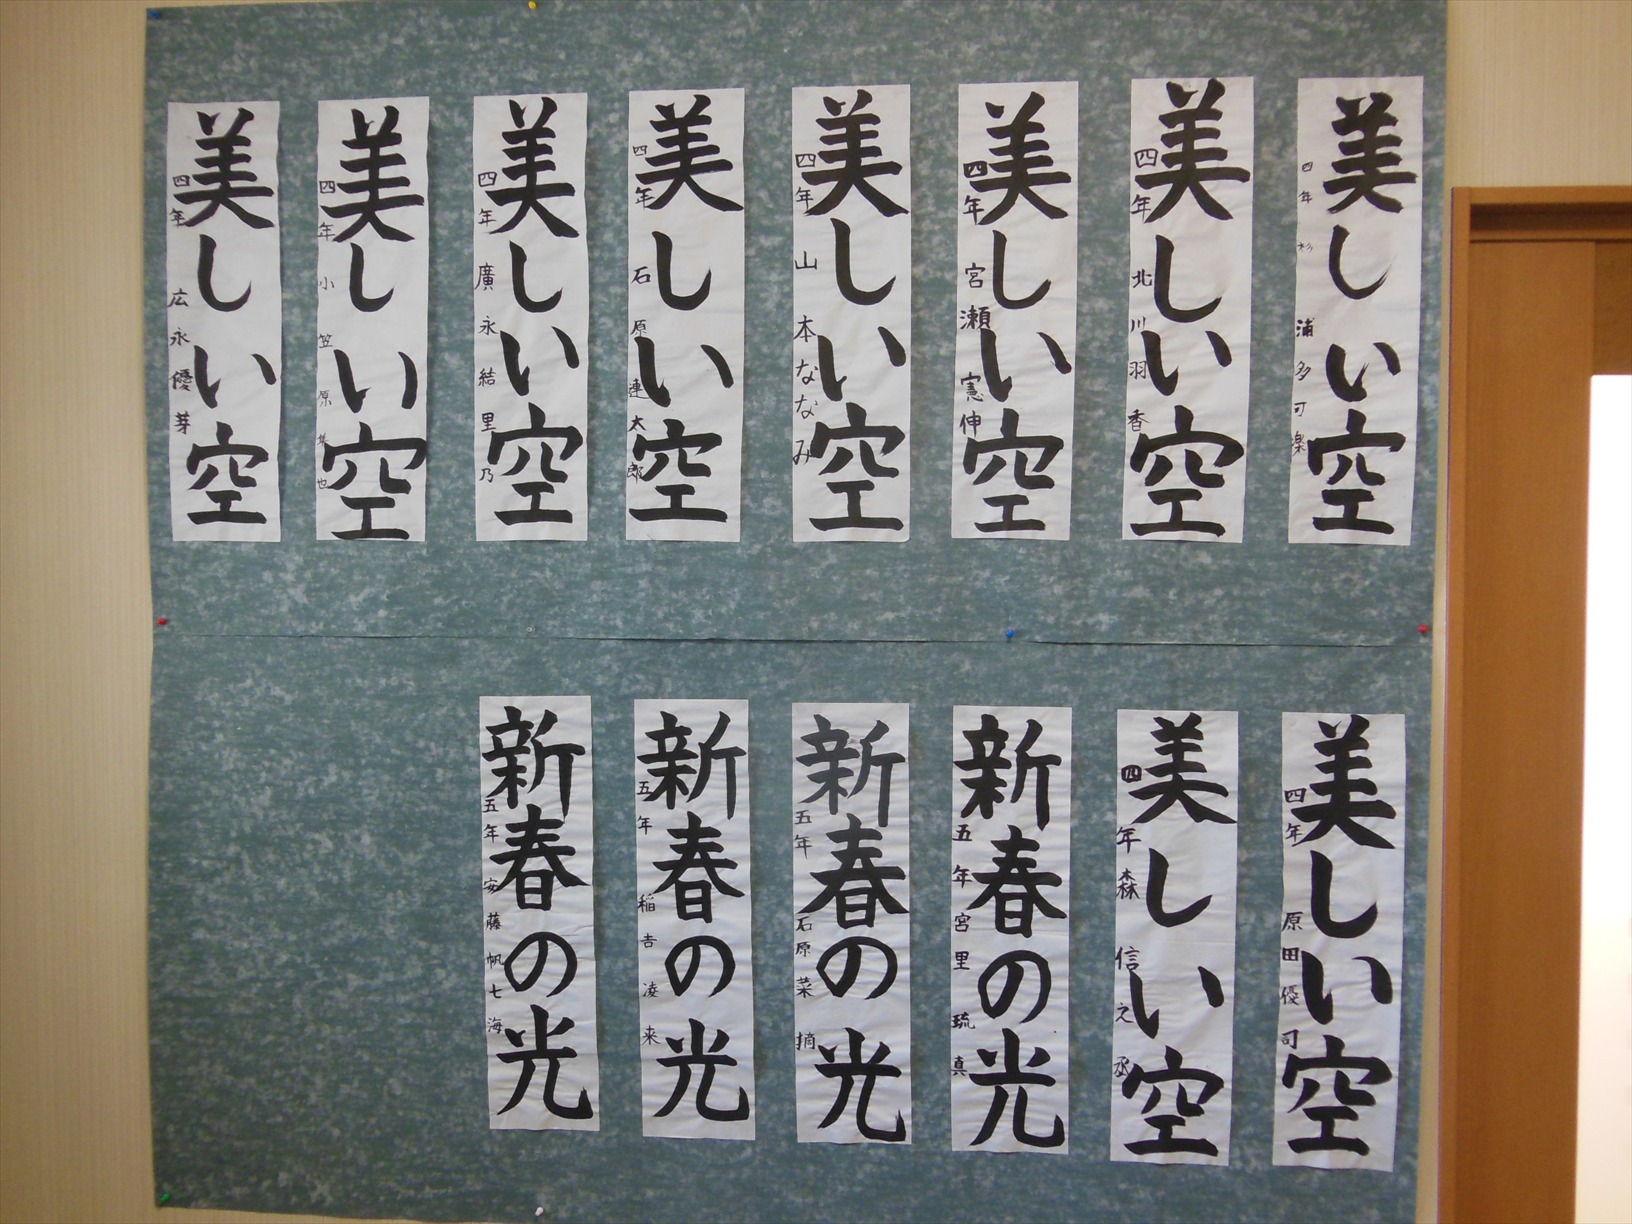 美しい空
四年 杉浦多可楽
美しい空
四年 北川羽香
美しい空
四年 宮瀬憲伸
美しい空
四年 山本ななみ
美しい空
四年 石原連太郎
美しい空
四年 廣永結里乃
美しい空
四年 小笠原 也
美しい空
四年 広永優芽
美しい空
四年 原田優司
美しい空
四年 森信之丞
新春の光
五年 宮里琉真
新春の光
五年 石原菜摘
新春の光
五年 稲吉凌来
新春の光
五年 安藤帆七海